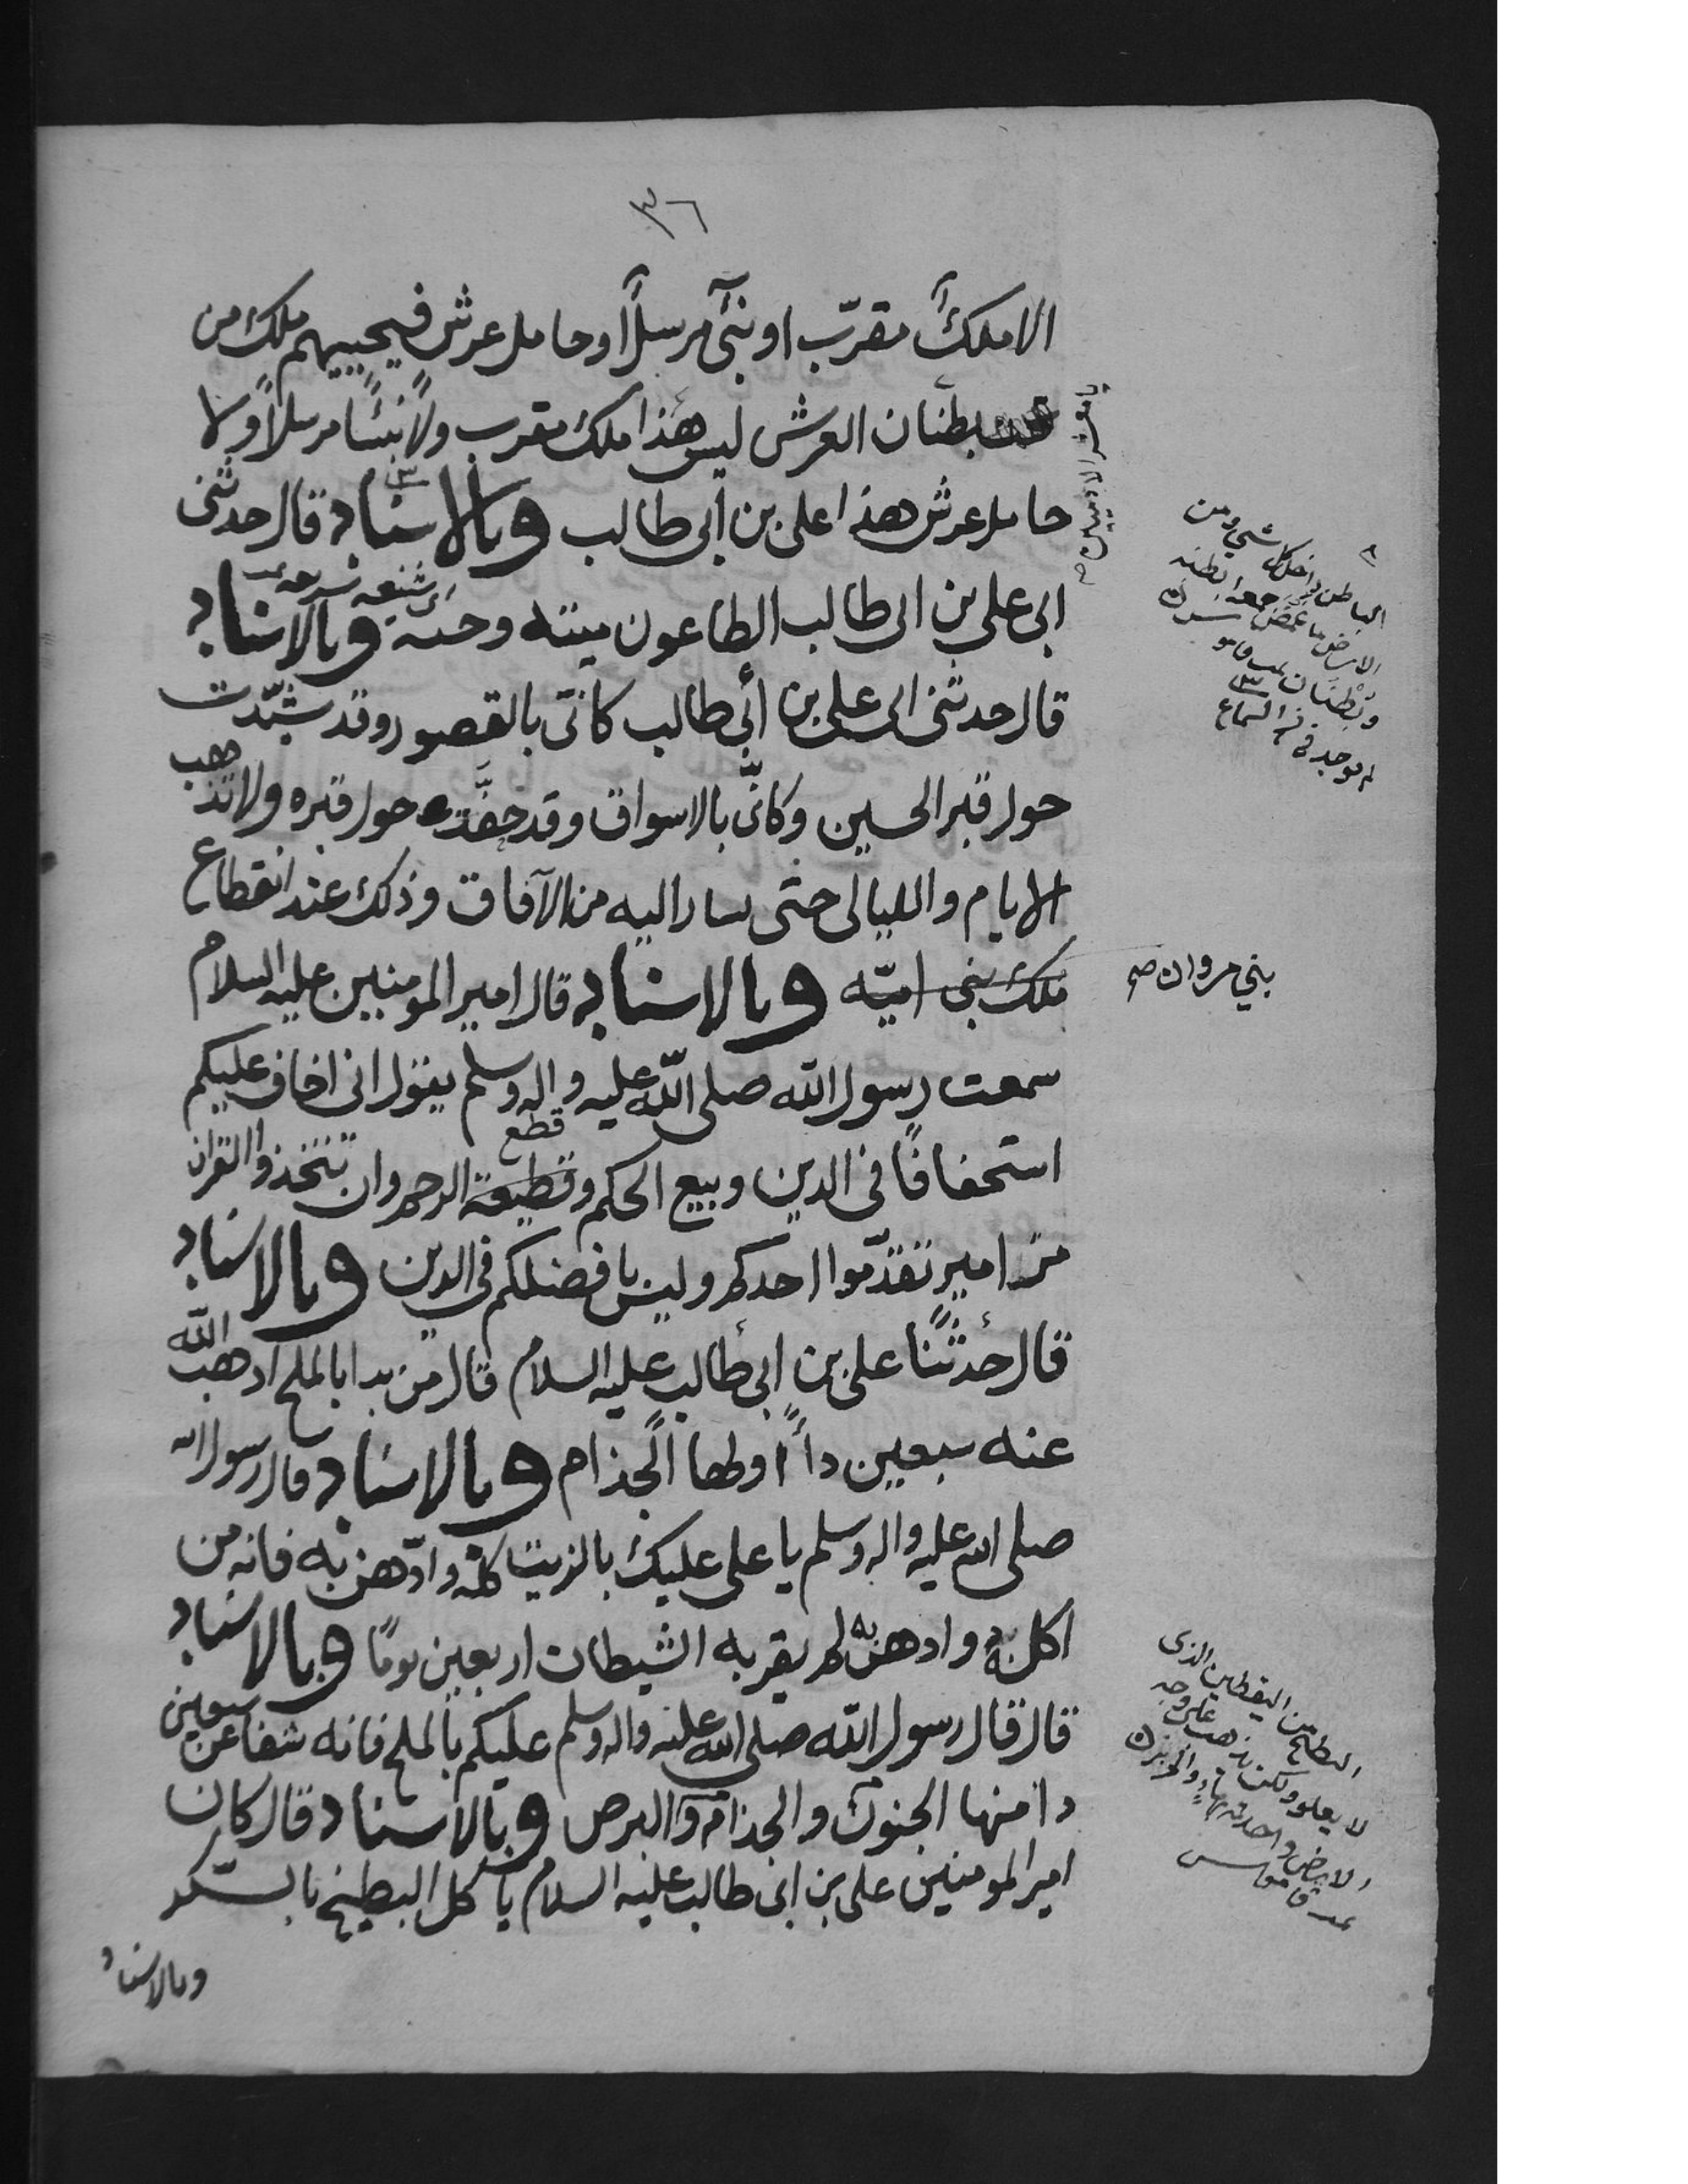 ٣٦
الا ملكٌ مقرّب او نبيٌّ مرسلًا او حامل عرش فيجيبهم ملك من
بطنان العرش ليس هذا ملك مقرب ولا نبيًا مرسلًا ولا
حامل عرش هذا علي بن أبي طالب وبالاسناد قال حدثني
ابي علي بن ابي طالب الطاعون ميتة وحيّة وبالاسناد
قال حدثني ابي علي بن أبي طالب كاني بالقصور وقد شيّدت
حول قبر الحسين وكانّي بالاسواق وقد حفّت حول قبره ولا تذهب
الايام والليالي حتى يسار اليه من الآفاق وذلك عند انقطاع
ملك بني اميّه وبالاسناد قال امير المومنين عليه السلام
بني مروان صح
سمعت رسول الله صلى الله عليه واله وسلم يقول اني اخاف عليكم
قطع
استخفافًا في الدين وبيع الحكم وقطيعة الرحم وان تتخذوا القران
مزامير تقدّموا احدكم وليس بافضلكم في الدين وبالاسناد
قال حدثنا علي بن ابي طالب عليه السلام قال من بدا بالملح اذهب الله
عنه سبعين داءً اولها الجذام وبالاسناد قال رسول الله
صلى الله عليه واله وسلم يا علي عليك بالزيت كله وادّهن به فانه من
اكل به وادهن به لم يقربه الشيطان اربعين يومًا وبالاسناد
قال قال رسول الله صلى الله عليه واله وسلم عليكم بالملح فانه شفا من سبعين
دا منها الجنون والجذام والبرص وبالاسناد قال كان
امير المومنين علي بن ابي طالب عليه السلام ياكل البطيخ بالسكر
وبالاسناد
الباطن داخل كل شيء ومن
الارض ما غمض جمعه ابطنه
وبطنان
لم يوجد في السماع
البطيخ من اليقطين الذي
لا يعلو ولكن يذهب على وجه
الارض واحدته بهاء
قاموس